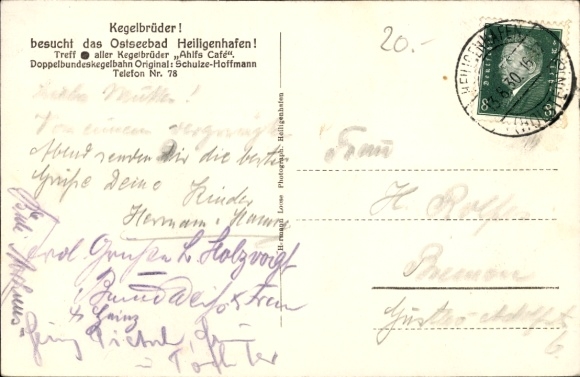 Kegelbrüder!
besucht das Ostseebad Heiligenhafen!
Treff ● aller Kegelbrüder „Ahlfs Café“.
Doppelbundeskegelbahn Original: Schulze-Hoffmann
Telefon Nr. 78
20.-
HEILIGENHAFEN
8 8
Liebe Mutter!
Von einem vergnügt
Abend senden Dir die besten
Grüße Deine Kinder
Hermann
Grüßen L. Holzvoigt
Frau
& Heinz
Tochter
Hermann Loose Photograph. Heiligenhafen
Frau
H. Rolfes
Bremen
Gustav-Adolfst
6